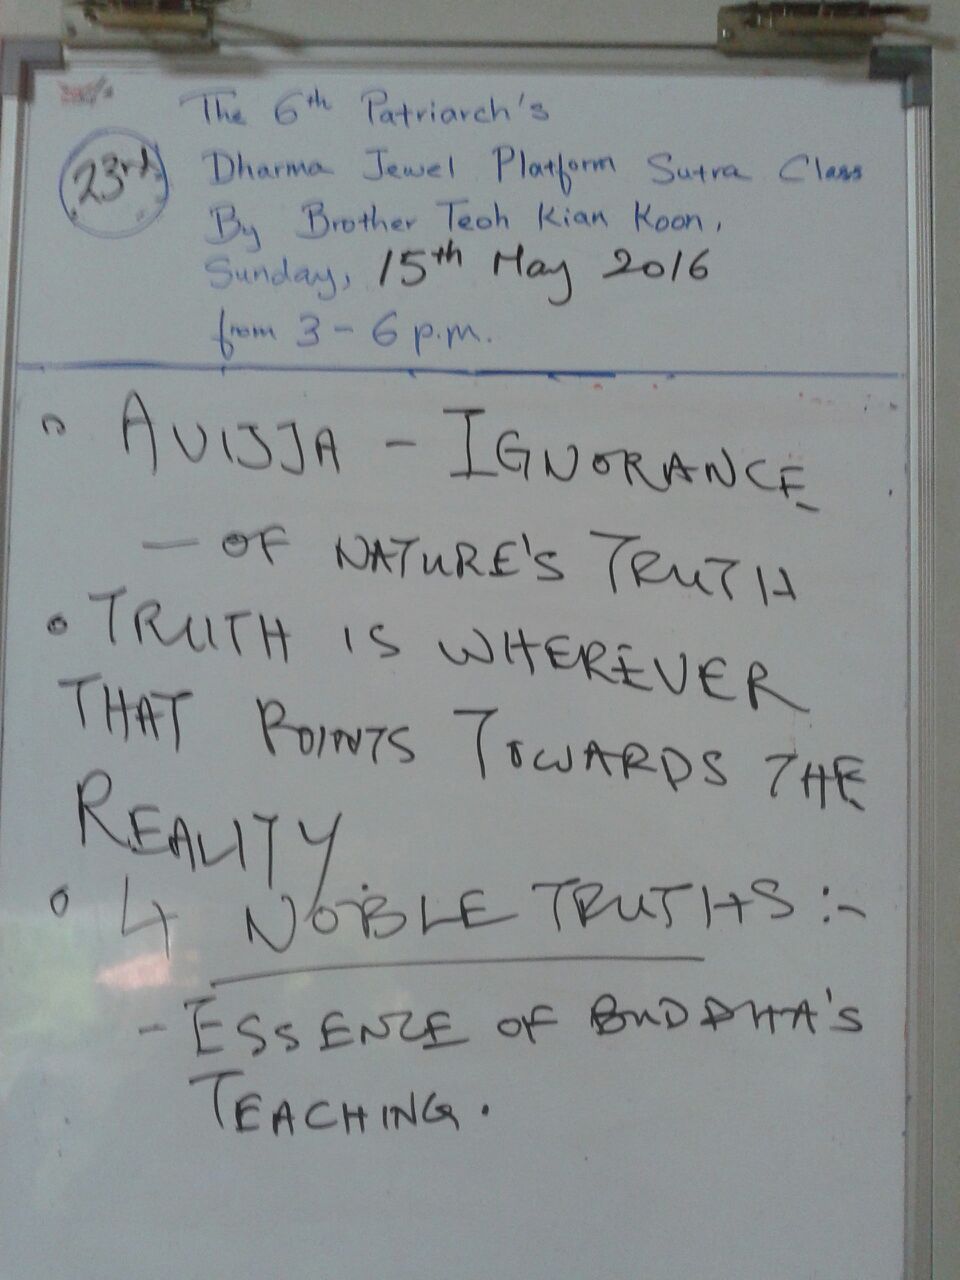 The 6th Patriarch's
23rd
Dharma Jewel Platform Sutra Class
By Brother Teoh Kian Koon,
Sunday, 15th May 2016
from 3 - 6 p.m.
AVIJJA - IGNORANCE
- OF NATURE'S TRUTH
• TRUTH IS WHEREVER
THAT POINTS TOWARDS THE
REALITY
• 4 NOBLE TRUTHS :-
- ESSENCE OF BUDDHA'S
TEACHING.